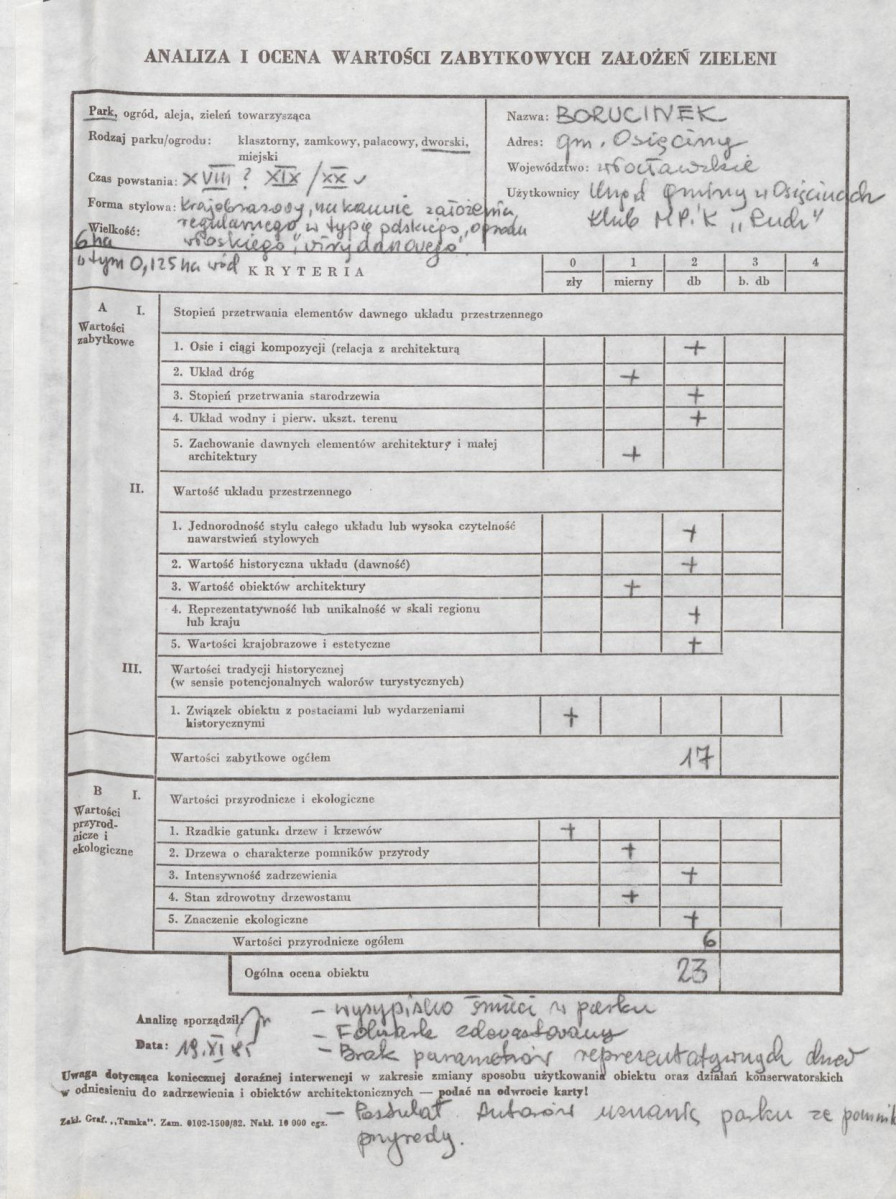 ANALIZA I OCENA WARTOŚCI ZABYTKOWYCH ZAŁOŻEŃ ZIELENI
Park, ogród, aleja, zieleń towarzysząca
Rodzaj parku/ogrodu: klasztorny, zamkowy, pałacowy, dworski,
miejski
Czas powstania: XVIII ? XIX / XX
Forma stylowa: Krajobrazowy, na kanwie założenia
regularnego w typie polskiego, ogrodu
Wielkość: włoskiego, "wirydarzowego".
6 ha
w tym 0,125 ha wód
Nazwa: BORUCINEK
Adres: gm. Osięciny
Województwo: włocławskie
Użytkownicy Urząd Gminy w Osięcinach
Klub MPiK "Ruch"
KRYTERIA
0 1 2 3 4
zły mierny db b. db
A I. Stopień przetrwania elementów dawnego układu przestrzennego
Wartości
zabytkowe
1. Osie i ciągi kompozycji (relacja z architekturą +
2. Układ dróg +
3. Stopień przetrwania starodrzewia +
4. Układ wodny i pierw. ukszt. terenu +
5. Zachowanie dawnych elementów architektury i małej
architektury +
II. Wartość układu przestrzennego
1. Jednorodność stylu całego układu lub wysoka czytelność
nawarstwień stylowych +
2. Wartość historyczna układu (dawność) +
3. Wartość obiektów architektury +
4. Reprezentatywność lub unikalność w skali regionu
lub kraju +
5. Wartości krajobrazowe i estetyczne +
III. Wartości tradycji historycznej
(w sensie potencjonalnych walorów turystycznych)
1. Związek obiektu z postaciami lub wydarzeniami
historycznymi +
Wartości zabytkowe ogółem 17
B I. Wartości przyrodnicze i ekologiczne
Wartości
przyrod-
nicze i
ekologiczne
1. Rzadkie gatunki drzew i krzewów +
2. Drzewa o charakterze pomników przyrody +
3. Intensywność zadrzewienia +
4. Stan zdrowotny drzewostanu +
5. Znaczenie ekologiczne +
Wartości przyrodnicze ogółem 6
Ogólna ocena obiektu 23
Analizę sporządził:
Data: 19.XI 85
- wysypisko śmieci w parku
- Folwark zdewastowany
- Brak parametrów reprezentatywnych drzew
Uwaga dotycząca koniecznej doraźnej interwencji w zakresie zmiany sposobu użytkowania obiektu oraz działań konserwatorskich
w odniesieniu do zadrzewienia i obiektów architektonicznych — podać na odwrocie karty!
- Postulat Autorów uznania parku za pomnik
przyrody.
Zakł. Graf. „Tamka". Zam. 0102-1500/82. Nakł. 10 000 egz.